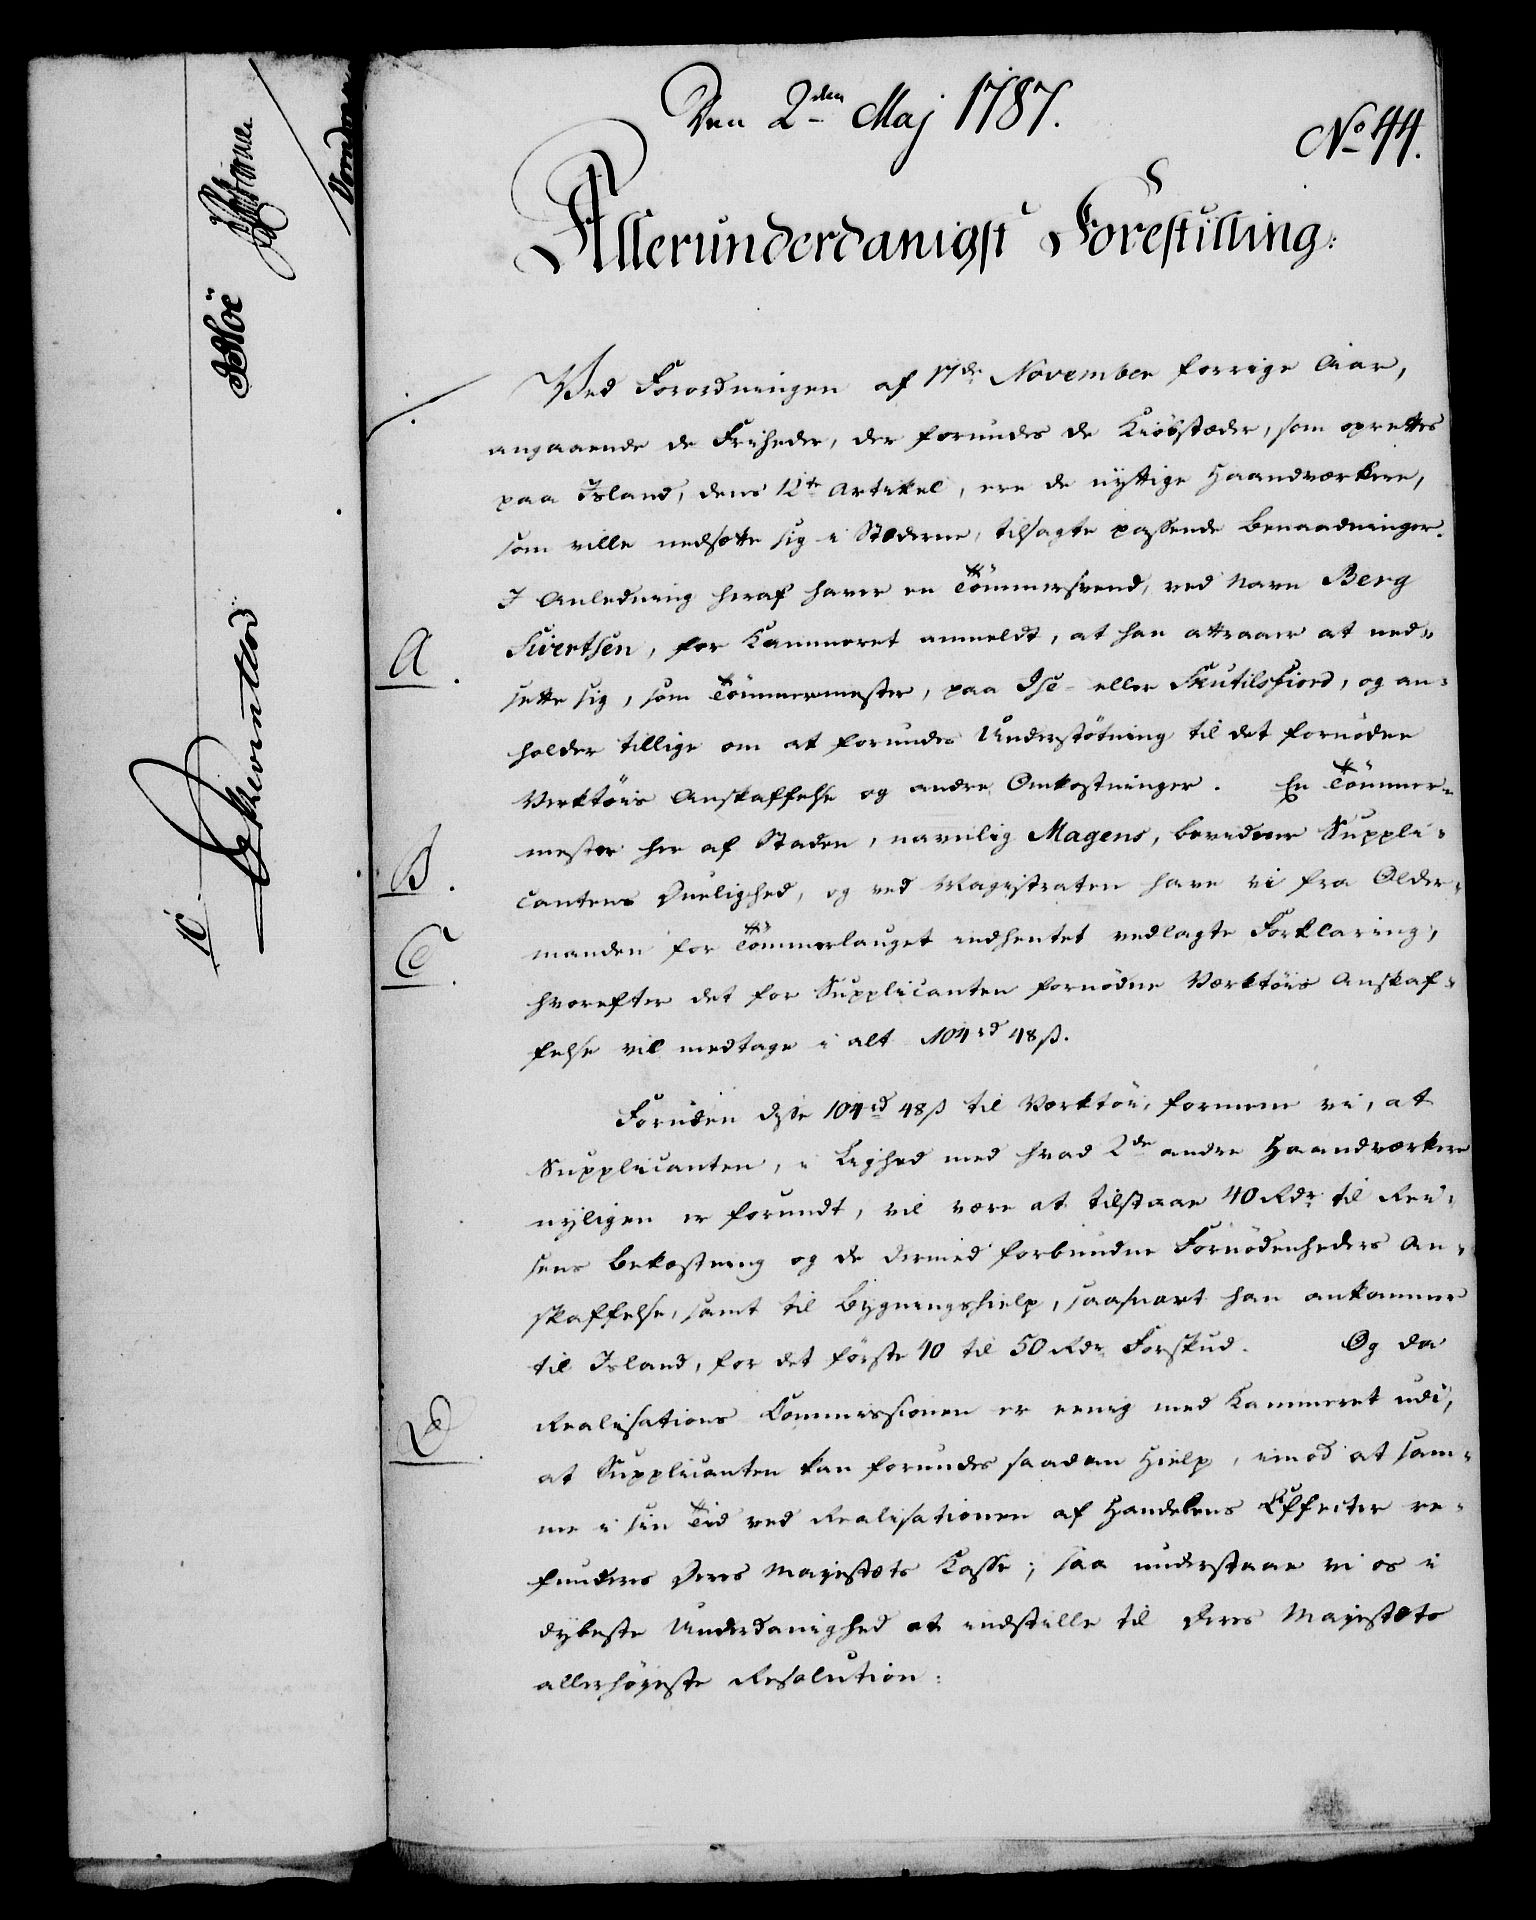 Den 2den Maj 1787.
No 44.
Allerunderdanigst Forestilling:
Ved Forordningen af 17de November forrige Aar,
angaaende de Friheder, der forundes de Kiöbstæder, som oprettes
paa Island, dens 12te Artikel, ere de nyttige Haandværkere,
som ville nedsætte sig i Stæderne, tilsagte passende Benaadninger.
I Anledning heraf haver en Tömmersvend, ved Navn Berg
A. Sivertsen, for Kammeret anmeldt, at han attraaer at ned-
sætte sig, som Tömmermester, paa Ise- eller Skutilsfiord, og an-
holder tillige om at forundes Understötning til det fornödne
Verktöis Anskaffelse og andre Omkostninger. En Tömmer-
mester her af Staden, navnlig Magens, bevidner Suppli-
B. cantens Duelighed, og ved Magistraten have vi fra Older-
C. manden for Tömmerlauget indhentet vedlagte Forklaring,
hvorefter det for Supplicanten fornödne Værktöis Anskaf-
felse vil medtage i alt 104 rd 48 ß.
Foruden disse 104 rd 48 ß til Værktöi, formene vi, at
Supplicanten, i Lighed med hvad 2de andre Haandværkere
nyligen er forundt, vil være at tilstaae 40 Rdr til Rei-
sens Bekostning og de dermed forbundne Fornödenheders An-
skaffelse, samt til Bygningshielp, saasnart han ankommer
til Island, for det förste 40 til 50 Rdr Forskud. Og da
D. Realisations Commissionen er eenig med Kammeret udi,
at Supplicanten kan forundes saadan Hielp, imod at sam-
me i sin Tid ved Realisationen af Handelens Effecter re-
funderes Deres Majestæts Kasse; saa understaae vi os i
dybeste Underdanighed at indstille til Deres Majestæts
allerhöyeste Resolution: